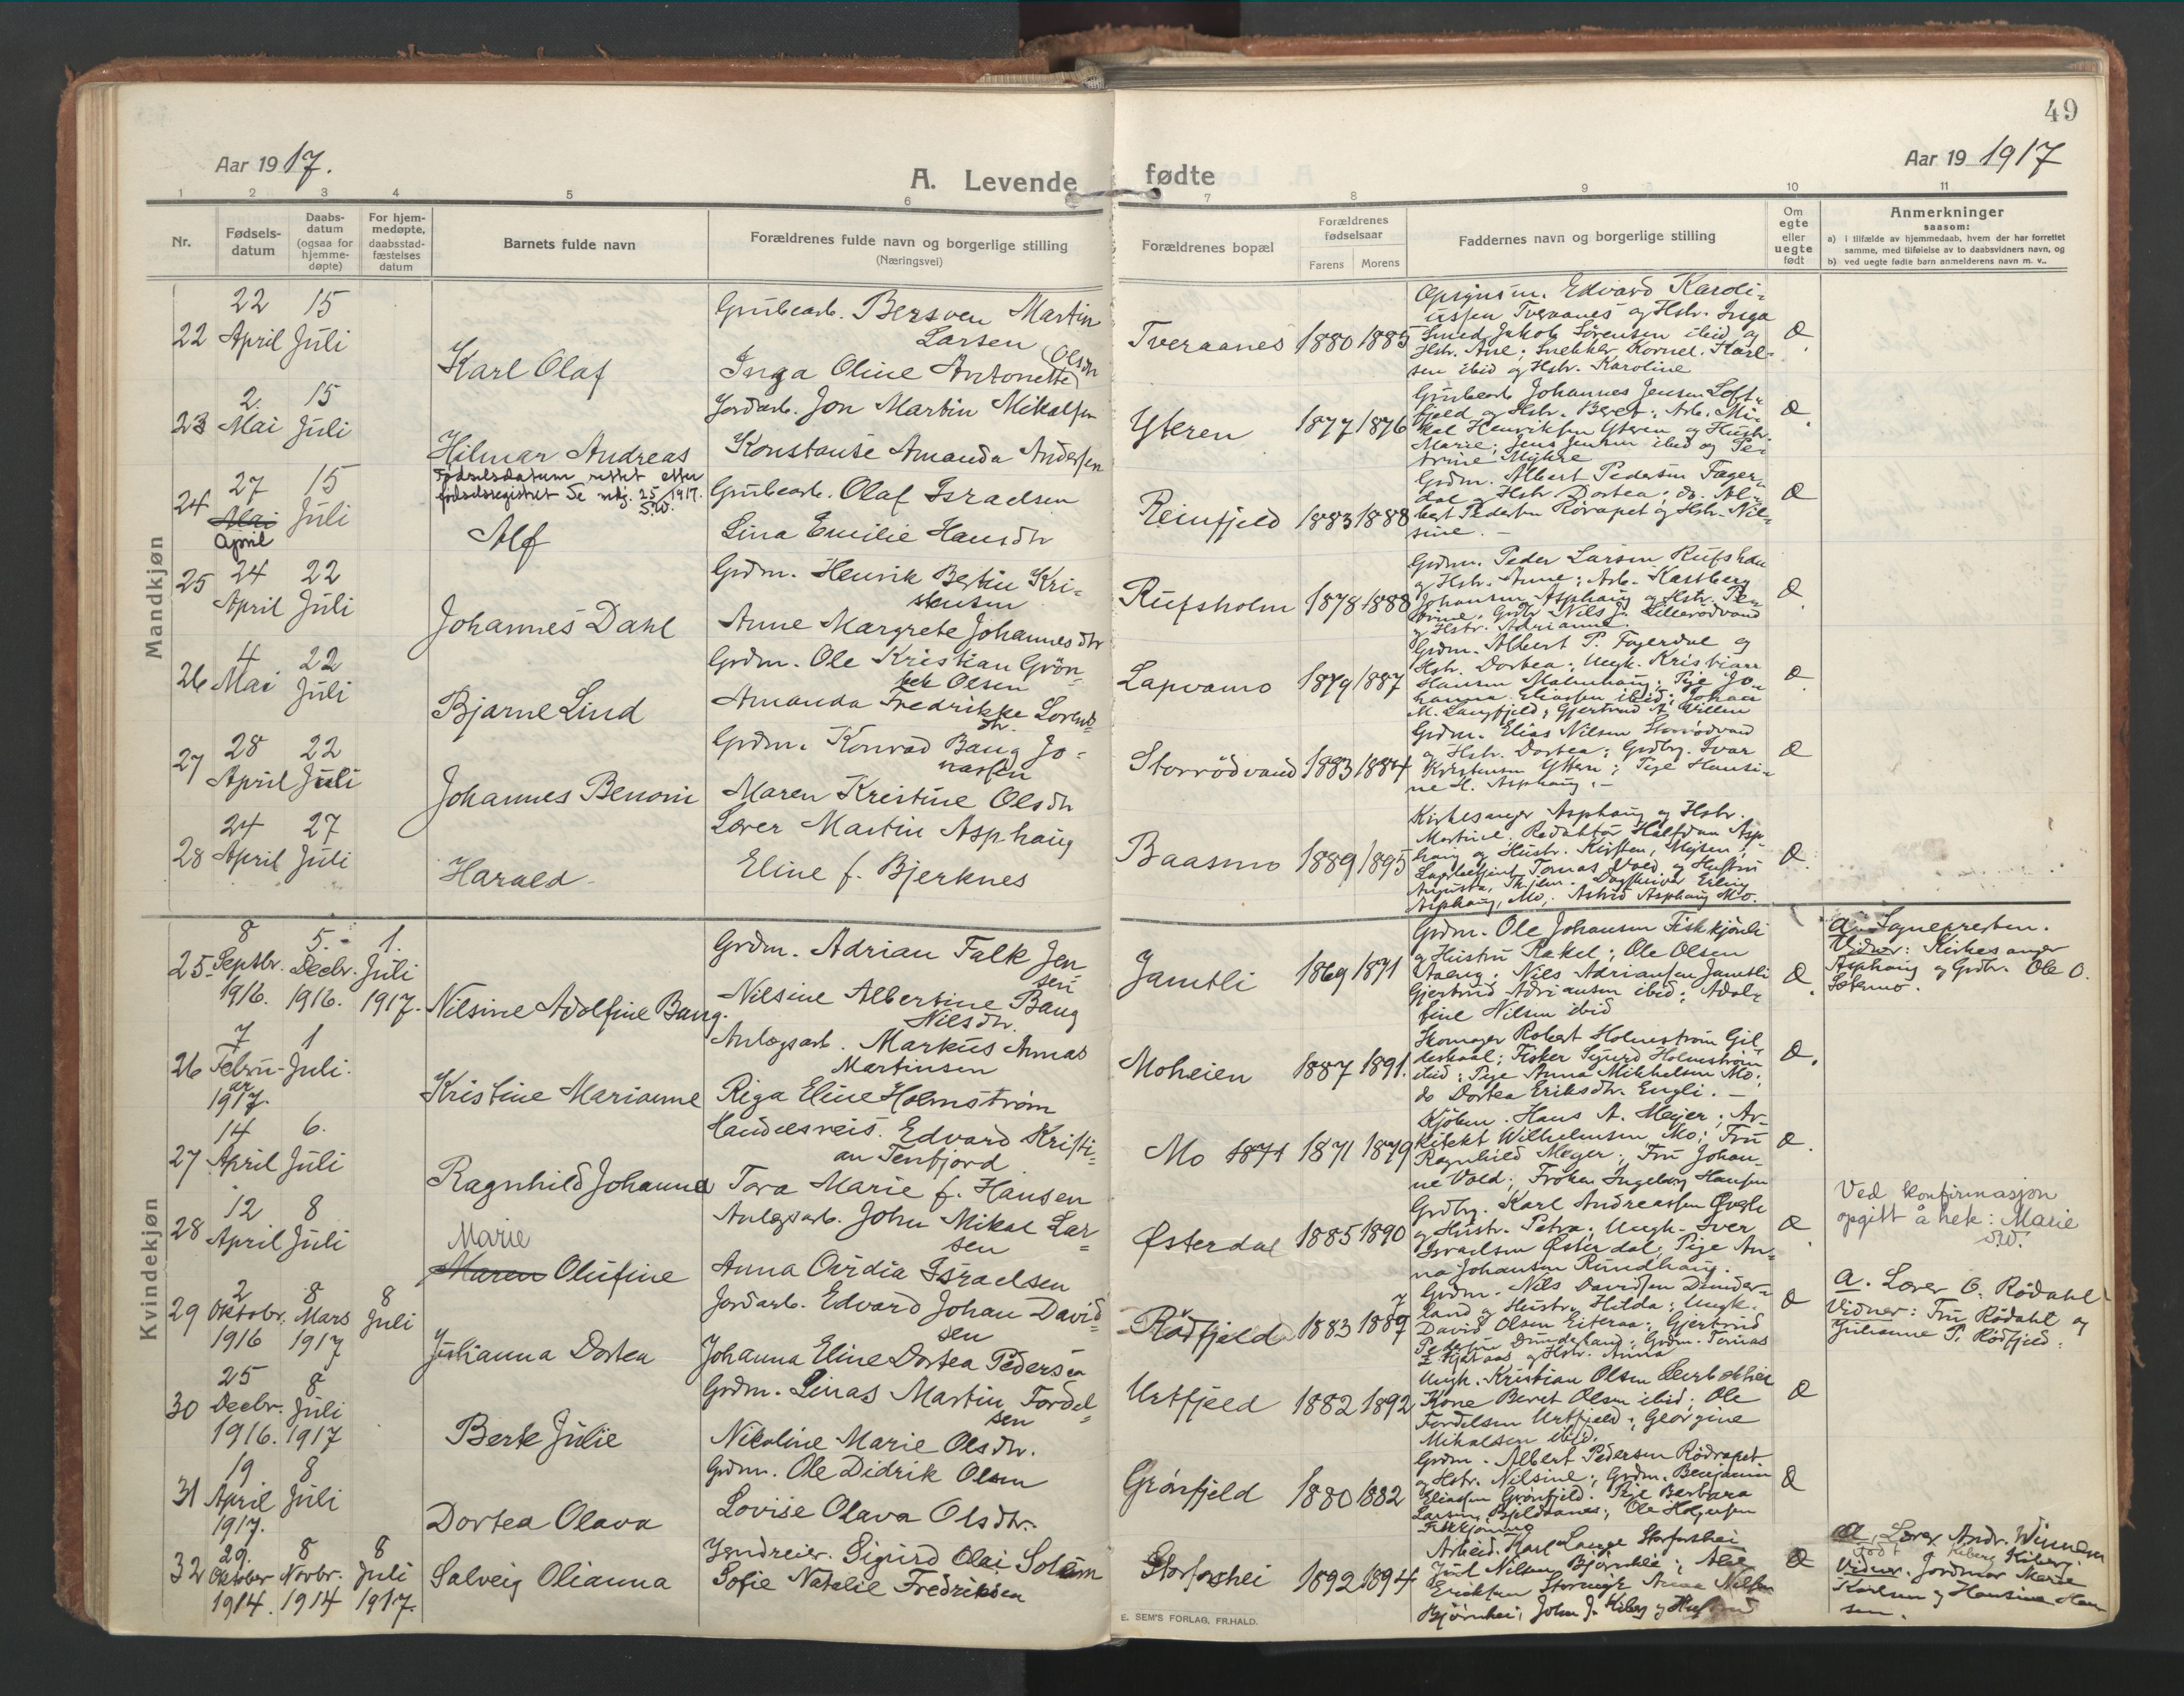 49
Aar 1917.
A. Levende fødte
Aar 19 1917
1 2 3 4 5 6 7 8 9 10 11
Nr.
Fødsels-
datum
Daabs-
datum
(ogsaa for
hjemme-
døpte)
For hjem-
medøpte,
daabsstad-
fæstelses
datum
Barnets fulde navn
Forældrenes fulde navn og borgerlige stilling
(Næringsvei)
Forældrenes bopæl
Forældrenes
fødselsaar
Farens Morens
Faddernes navn og borgerlige stilling
Om
egte
eller
uegte
født
Anmerkninger
saasom:
a) i tilfælde av hjemmedaab, hvem der har forrettet
samme, med tilføielse av to daabsvidners navn, og
b) ved uegte fødte barn anmelderens navn m. v..
Mandkjøn
22
22 April
15 Juli
Karl Olaf
Grubearb. Bersven Martin
Larsen
Inga Oline Antonette Olsdtr
Tveraanes 1880 1885
Opsynsm. Edvard Karoli-
ussen Tveraanes og Hstr. Inga
Smed Jakob Sørensen ibid og
Hstr. Ane; Snekker Kornel. Karl-
sen ibid og Hstr. Karoline
Æ.
23
2. Mai
15 Juli
Hilmar Andreas
Jordarb. Jon Martin Mikalsen
Konstanse Amanda Andersen
Yteren 1877 1876
Grubearb Johannes Jensen Loft-
fjeld og Hstr. Beret; Arb. Mi-
kal Henriksen Yteren og Hustr.
Marie; Jens Jensen ibid og Pe-
trine Myhre
Æ.
24
27 Mai
April
15 Juli
Fødselsdatum rettet etter
fødselsregistret Se nkj. 25/1917.
S.W.
Alf
Grubearb. Olaf Israelsen
Lina Emilie Hansdtr
Reinfjeld 1883 1888
Grdm. Albert Pedersen Fager-
dal og Hstr Dortea; do. Al-
bert Pedersen Rørapet og Hstr. Nil-
sine. -
Æ
25
24 April
22 Juli
Johannes Dahl
Grdm. Henrik Bertin Kri-
stensen
Anne Margrete Johannesdtr
Rufsholm 1878 1888
Grdm. Peder Larsen
og Hstr. Anne; Arb. Kastberg
Johansen Asphaug og Hstr. Pe-
Nils J. Lillerødvand
og Hstr. Adrianna.
Æ.
26
4 Mai
22 Juli
Bjarne Lind
Grdm. Ole Kristian Grøn-
bek Olsen
Amanda Fredrikke Lorents-
dtr.
Lapvamo 1879 1887
Grdm. Albert P. Fagerdal og
Hstr. Dortea; Ungk. Kristian
Hansen Malmhaug; Pije Jo-
hanna Eliassen ibid; Johan
M. Langfjeld; Gjertrud A Willem
Æ.
27
28 April
22 Juli
Johannes Benoni
Grdm. Konrad Baug Jo-
nassen
Maren Kristine Olsdtr
Storrødvand 1883 1884
Grdm. Elias Nilsen Storrødvand
og Hstr. Dortea; Grdbrg. Ivar
Kristensen Yttern; Pije Hansi-
ne H. Asphaug. -
Æ
28
24 April
27 Juli
Harald
Lærer Martin Asphaug
Eline f. Bjerknes
Baasmo 1889 1895
Kirkesanger Asphaug og Hstr.
Martine; Redaktør Halfdan Asp-
haug og Hustr. Kirsten, Mysen;
Tomas Vold og Hustru
Augusta, Dagskriver Erling
Asphaug, Mo; Astrid Asphaug Mo.
Æ.
Kvindekjøn
25
8 Septbr. 1916.
5. Decbr. 1916.
1. Juli 1917.
Nilsine Adolfine Baug.
Grdm. Adrian Falk Jen-
sen
Nilsine Albertine Baug
Nilsdtr.
Jamtli 1869 1871
Grdm. Ole Johansen Fiskkjønli
og Hustru Rakel; Ole Olsen
Nils Adriansen Jamtli
Gjertrud Adriansen ibid; Adol-
fine Nilsen ibid
Æ.
a. Sogneprersten.
Vidner: Kirkesanger
Asphaug og Grdbr. Ole O.
Sætermo.
26
7 Febru-
ar 1917.
1 Juli.
Kristine Marianne
Anlægsarb. Markus Annas
Martinsen
Riga Eline Holmstrøm
Moheien 1887 1891.
Skomager Robert Holmestrøm Gil-
deskaal; Fisker Sigurd Holmstrøm
ibid; Pije Anna Mikkelsen Mo;
do Dortea Eriksdtr. Engli. -
Æ.
27
14 April
6. Juli
Ragnhild Johanna
Handelsreis. Edvard Kristi-
an Tenfjord
Tora Marie f. Hansen
Mo 1871 1871 1879
Kjøbm. Hans A. Meyer; Ar-
kitekt Wilhelmsen Mo; Fru
Ragnhild Meyer; Fru Johan-
ne Vold; Frøken Ingeborg Hansen
Æ.
28
12 April
8 Juli
Marie
Maren Olufine
Anlægsarb. John Mikal Lar-
sen
Anna Ovidia Israelsen
Østerdal 1885 1890
Grdbrg. Karl Andreassen
og Hustr. Petra; Ungk. Iver
Israelsen Østerdal; Pije An-
na Johansen Rundhaug.
Æ.
Ved konfirmasjon
opgitt å hete: Marie
S.W.
29
2 Oktobr. 1916
8 Mars 1917
8 Juli
Julianna Dortea
Jordarb. Edvard Johan David-
sen
Johanna Eline Dortea Pedersen
Rødfjeld 1883 1889
Grdm. Nils Davidsen Dunder-
land og Hustru Hilda; Ungk.
David Olsen Eiteraa; Gjertrud
Pedersen Dunderland; Grdm. Tomas
og Hstr. Anna
Æ
a. Lærer O. Rødahl
Vidner: Fru Rødahl og
Julianne P. Rødfjeld.
30
25 Decbr. 1916.
8 Juli 1917
Berte Julie
Grdm. Linas Martin Fordel-
sen
Nikoline Marie Olsdtr.
Urtfjeld 1882 1892
Ungk. Kristian Olsen
Kone Beret Olsen ibid; Ole
Fordelsen Urtfjeld; Georgine
Mikalsen ibid.
Æ
31
19 April 1917.
8 Juli
Dortea Olava
Grdm. Ole Didrik Olsen
Lovise Olava Olsdtr.
Grønfjeld 1880 1882
Grdm. Albert Pedersen Rødrapet
og Hstr. Nilsine; Grdm. Benjamin
Eliassen Grønfjeld; Pije Berbara
Larsen, Ole Holgersen
Æ
32
29. Oktober 1914.
8 Novbr. 1914
8 Juli 1917.
Solveig Olianna
Jendreier. Sigurd Olai Solem
Sofie Natalie Fredriksen
Storforshei 1892 1894
Arbeid. Karl Lange Storforshei
Juul Nilsen Bjørnhei; Ane
Eriksen Anna Nilsen
Bjørnhei; John J. Kiberg og Hustru
Æ
a. Lærer Andr. Winnem
Vidner. Jordmor Marie
Karlsen og Hansine Han-
sen.
E. SEM'S FORLAG, FR.HALD.